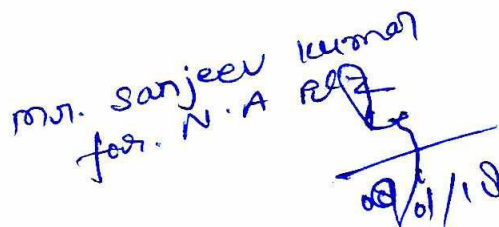 Mr. Sanjeev Kumar
for. N.A Plz
08/01/18